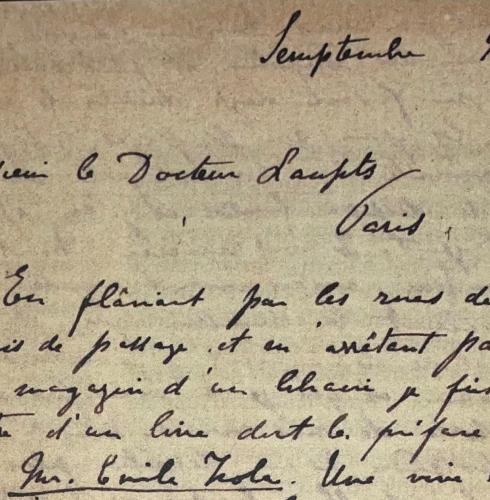 Semptembre
le Docteur Laupts
Paris
En flânant par les rues de
de passage, et en arrêtant
magazin d'un libraire je fus
d'un livre dont la préface
Mr. Emile Zola. Une vive